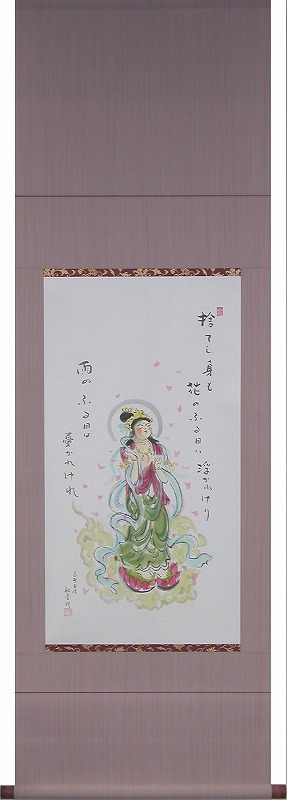 捨てし身も
花のふる日は
浮かれけり
雨の
ふる日は
憂かれけれ